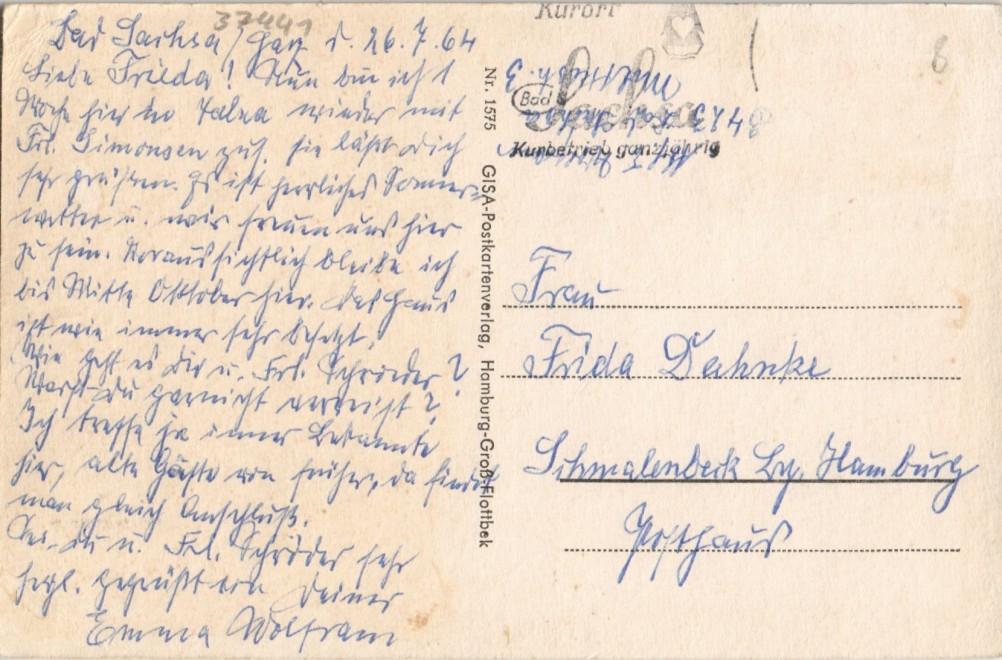 37441
Bad Sachsa / Harz d. 26.7.64
Liebe Frieda! Nun bin ich 1
Woche hier wieder mit
Frl. Simonsen zus. Sie läßt Dich
sehr grüßen. Es ist herrliches Sommer-
wetter u. wir freuen uns hier
zu sein. Voraussichtlich bleibe ich
bis Mitte Oktober hier. Das Haus
ist wie immer sehr besetzt.
Wie geht es Dir u. Frl. Schröder?
Warst Du garnicht verreist?
Ich treffe ja immer Bekannte
hier, alte Gäste von früher, da findet
man gleich Anschluß.
Sei Du u. Frl. Schröder sehr
herzl. gegrüßt von Deiner
Emma Wolfram
Nr. 1575 GISA-Postkartenverlag, Hamburg-Groß-Flottbek
Kurort
Bad Sachsa
Kurbetrieb ganzjährig
8
Frau
Frida Dahnke
Schmalenbeck Bz. Hamburg
Posthaus